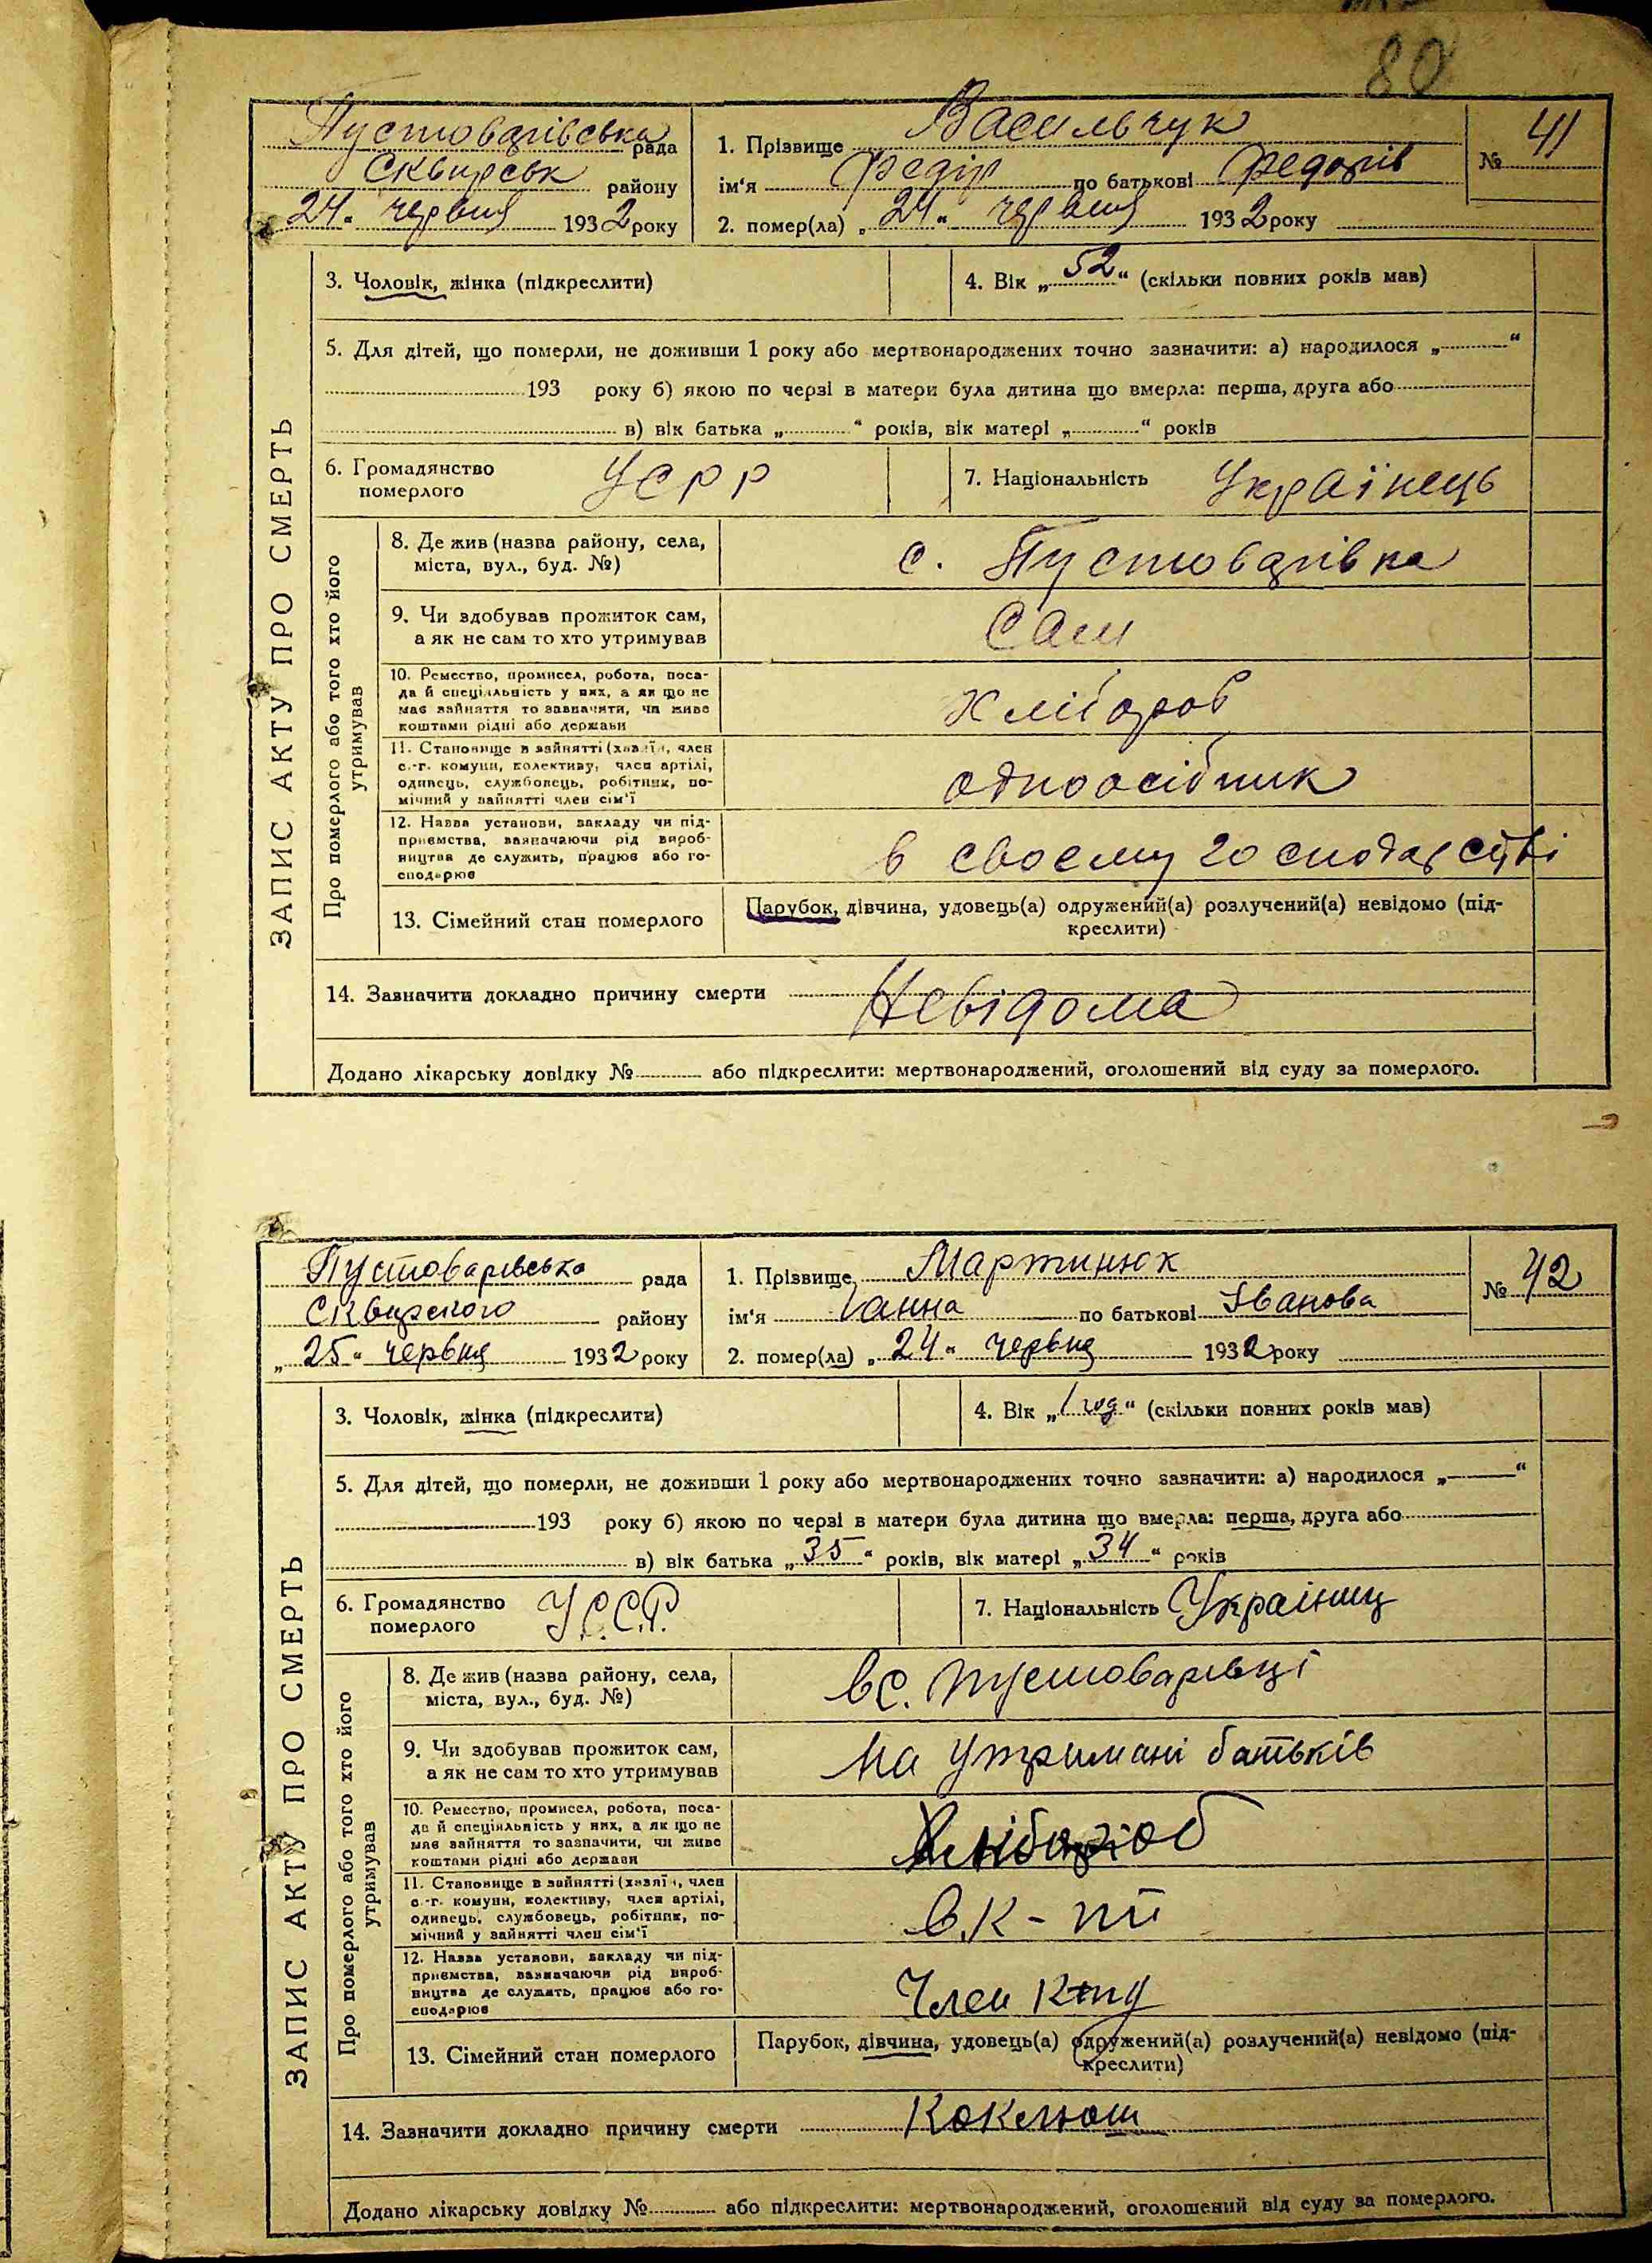 80
Пустоварівська рада
Сквирськ району
24 " червня 1932 року
1. Прізвище Васильчук
ім'я Федір по батькові Федорів
2. помер(ла) „ 24 " червня 1932 року
№ 41
ЗАПИС АКТУ ПРО СМЕРТЬ
3. Чоловік, жінка (підкреслити)
4. Вік „ 52 " (скільки повних років мав)
5. Для дітей, що померли, не доживши 1 року або мертвонароджених точно зазначити: а) народилося „ "
193 року б) якою по черзі в матери була дитина що вмерла: перша, друга або
в) вік батька „ " років, вік матері „ " років
6. Громадянство
померлого
УСРР
7. Національність Українець
Про померлого або того хто його
утримував
8. Де жив (назва району, села,
міста, вул., буд. №)
с. Пустоварівка
9. Чи здобував прожиток сам,
а як не сам то хто утримував
Сам
10. Ремество, промисел, робота, поса-
да й спеціяльність у них, а як що не
має зайняття то зазначити, чи живе
коштами рідні або держави
Хлібороб
11. Становище в зайнятті (хазяїн, член
с.-г. комуни, колективу, член артілі,
одинець, службовець, робітник, по-
мічний у зайнятті член сім'ї
одноосібник
12. Назва установи, закладу чи під-
приємства, зазначаючи рід вироб-
ництва де служить, працює або го-
сподарює
в своему господарстві
13. Сімейний стан померлого
Парубок, дівчина, удовець(а) одружений(а) розлучений(а) невідомо (під-
креслити)
14. Зазначити докладно причину смерти Невідома
Додано лікарську довідку № або підкреслити: мертвонароджений, оголошений від суду за померлого.
Пустоварівська рада
Сквирского району
„ 25 " червня 1932 року
1. Прізвище Мартинюк
ім'я Ганна по батькові Іванова
2. помер(ла) „ 24 " червня 1932 року
№ 42
ЗАПИС АКТУ ПРО СМЕРТЬ
3. Чоловік, жінка (підкреслити)
4. Вік „ 1 год " (скільки повних років мав)
5. Для дітей, що померли, не доживши 1 року або мертвонароджених точно зазначити: а) народилося „ "
193 року б) якою по черзі в матери була дитина що вмерла: перша, друга або
в) вік батька „ 35 " років, вік матері „ 34 " років
6. Громадянство
померлого
У.С.С.Р.
7. Національність
Про померлого або того хто його
утримував
8. Де жив (назва району, села,
міста, вул., буд. №)
в с. Пустоварівці
9. Чи здобував прожиток сам,
а як не сам то хто утримував
на утримані батьків
10. Ремество, промисел, робота, поса-
да й спеціяльність у них, а як що не
має зайняття то зазначити, чи живе
коштами рідні або держави
11. Становище в зайнятті (хазяїн, член
с.-г. комуни, колективу, член артілі,
одинець, службовець, робітник, по-
мічний у зайнятті член сім'ї
12. Назва установи, закладу чи під-
приємства, зазначаючи рід вироб-
ництва де служить, працює або го-
сподарює
Член
13. Сімейний стан померлого
Парубок, дівчина, удовець(а) одружений(а) розлучений(а) невідомо (під-
креслити)
14. Зазначити докладно причину смерти Коклюш
Додано лікарську довідку № або підкреслити: мертвонароджений, оголошений від суду за померлого.